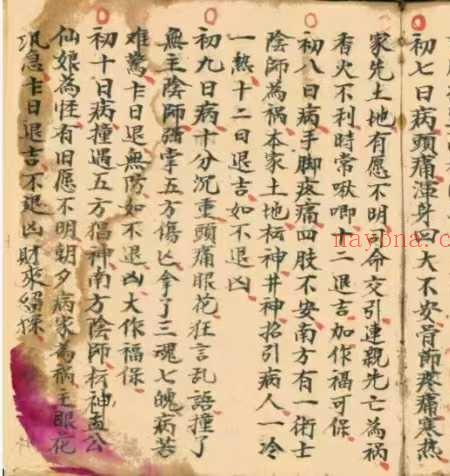 初七日病頭痛渾身四大不安骨節疼痛寒熱
家先土地有愿不明司命交引連親先亡為禍
香火不利時常啾唧十二退吉加作福可保
初八日病手脚疼痛四肢不安南方有一術士
陰師為禍本家土地坛神井神招引病人一冷
一熱十二日退吉如不退凶
初九日病十分沉重頭痛眼花狂言乱語撞了
無主陰師强掌五方傷亡拿了三魂七魄病若
难驚卡日退無防如不退凶大作福保
初十日病撞遇五方猖神南方陰師坛神孟公
仙娘為怪有旧愿不明朝夕病家為禍主眼花
急卡日退吉不退凶財來
nayona.cn